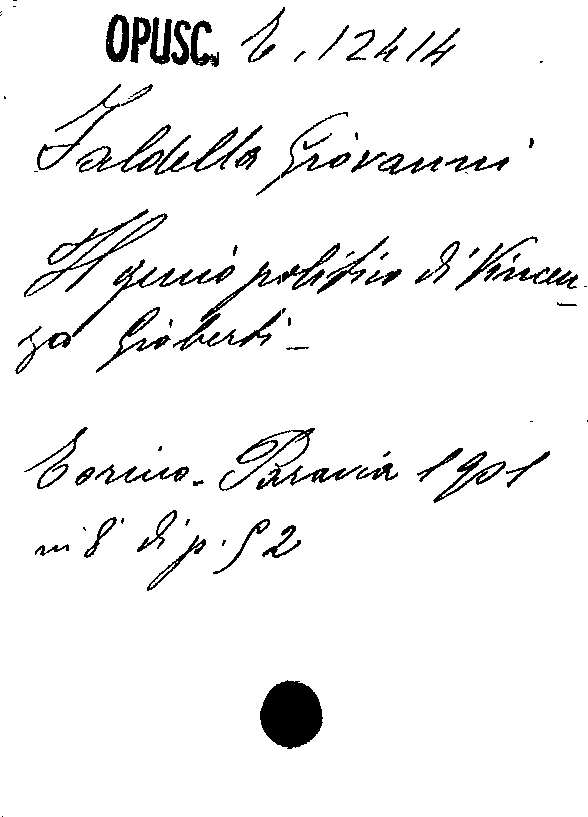 OPUSC. E. 12414
Faldella Giovanni
Il genio politico di Vincen-
zo Gioberti -
Torino - Paravia 1901
in 8° di p. 52